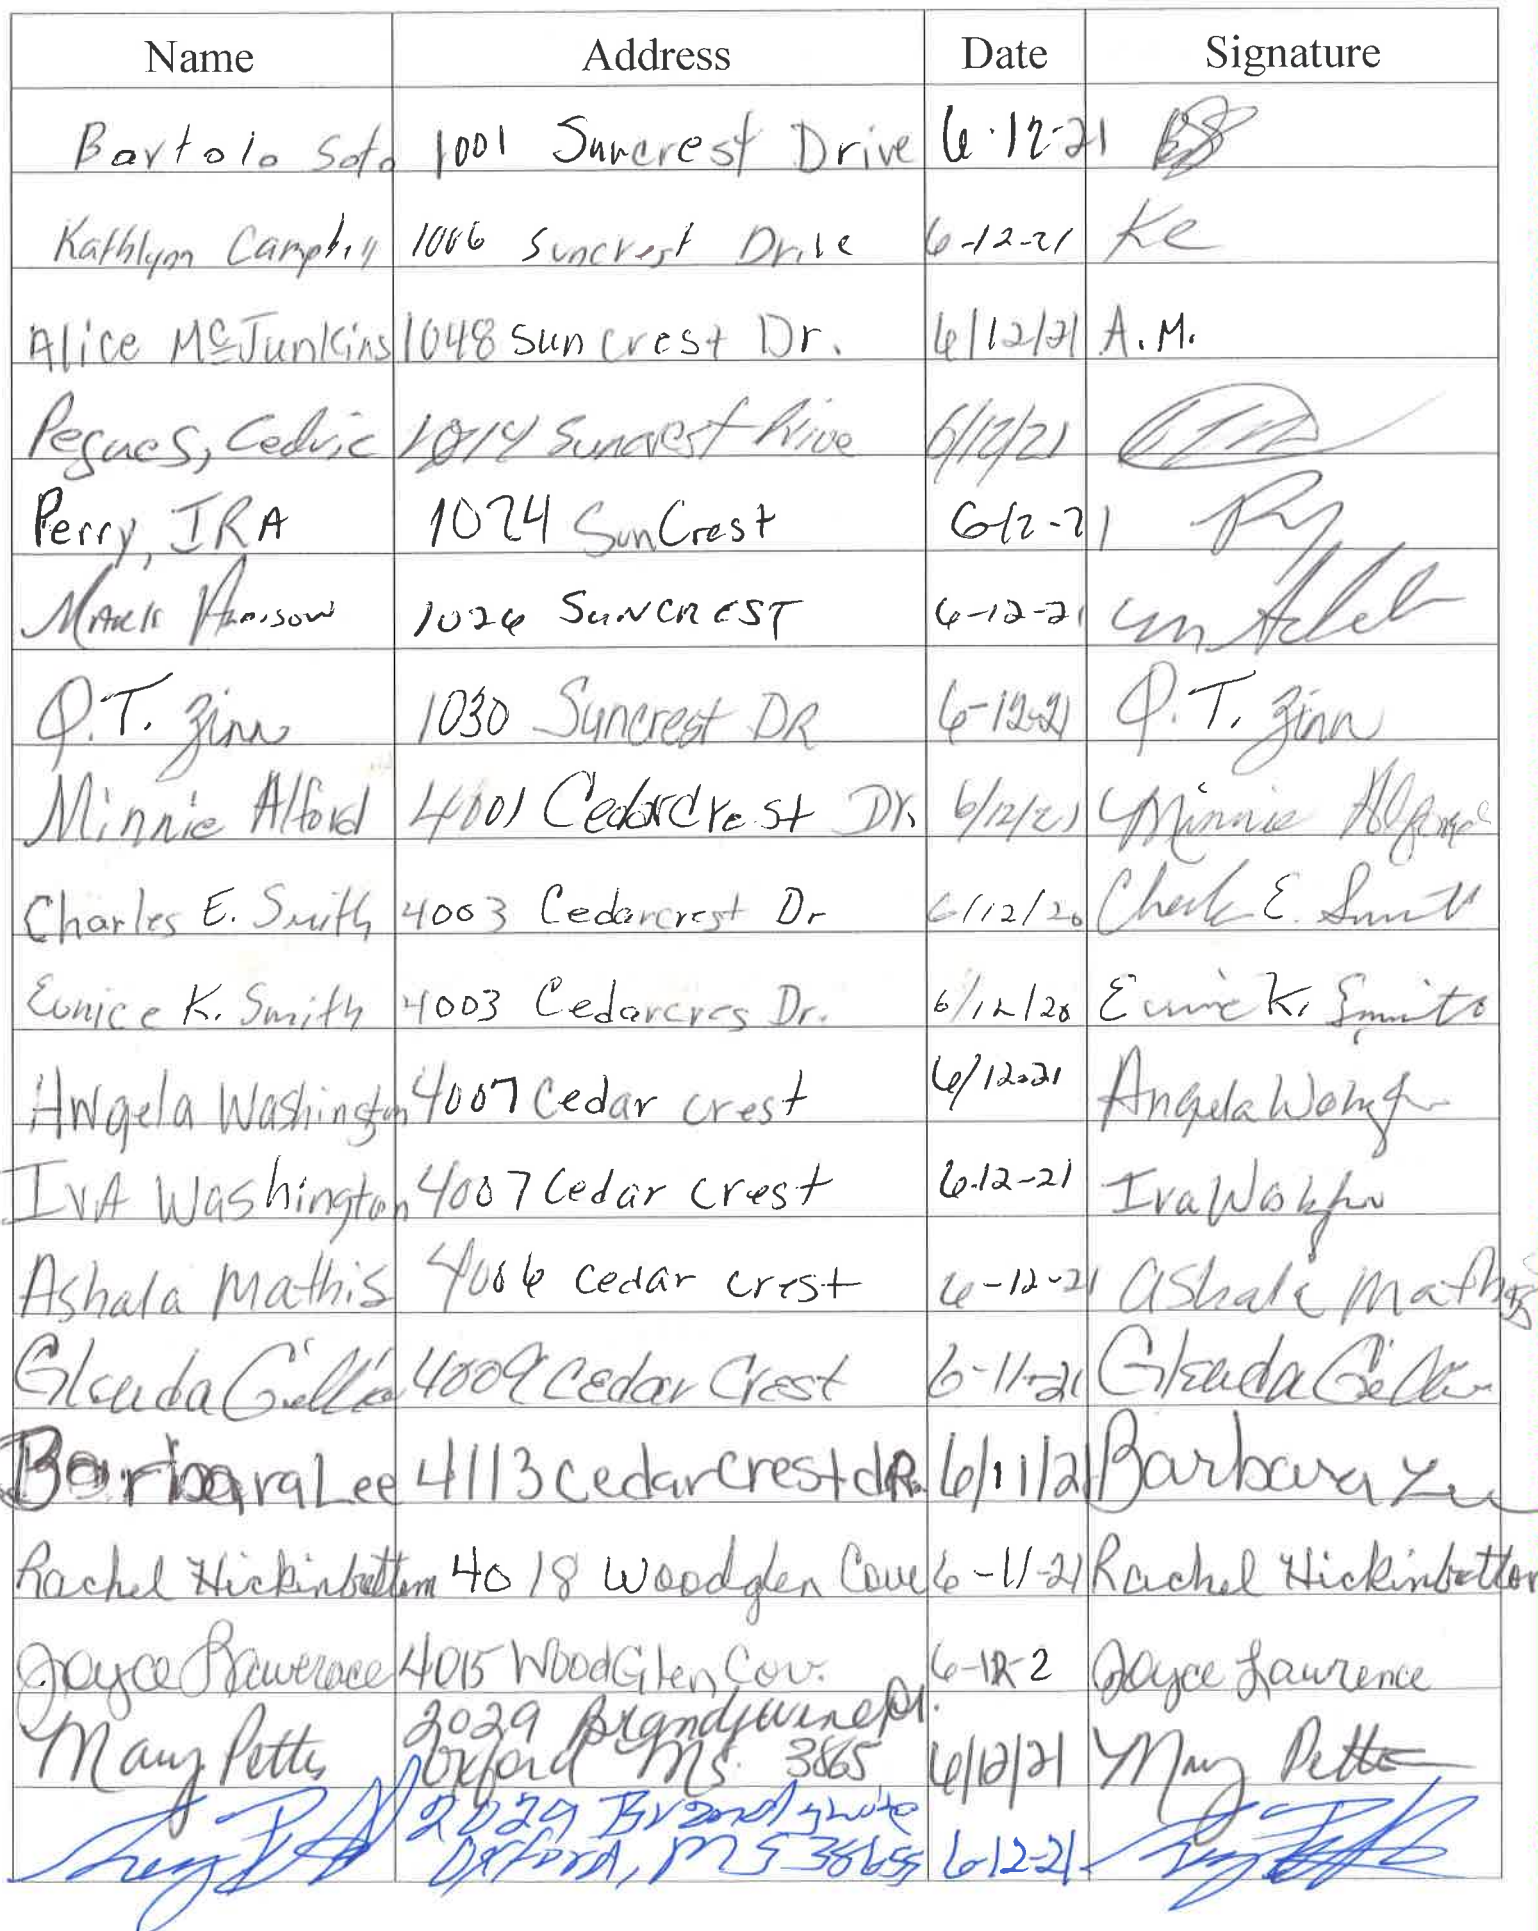 Name Address Date Signature
Bartolo Soto 1001 Suncrest Drive 6-12-21
Kathlynn Campbill 1006 Suncrest Drive 6-12-21 KC
Alice McJunkins 1048 Suncrest Dr. 6/12/21 A.M.
Pegues, Cedric 1014 Suncrest Drive 6/12/21
Perry, IRA 1024 SunCrest 6-12-21
Mark Harrison 1026 SUNCREST 6-12-21
Q.T. Zinn 1030 Suncrest DR 6-12-21 Q.T. Zinn
Minnie Alford 4001 Cedarcrest Dr. 6/12/21 Minnie Alford
Charles E. Smith 4003 Cedarcrest Dr 6/12/20 Charles E. Smith
Eunice K. Smith 4003 Cedarcres Dr. 6/12/20 Eunice K. Smith
Angela Washington 4007 Cedar crest 6/12-21 Angela
IvA Washington 4007 Cedar crest 6-12-21 Iva
Ashala Mathis 4006 cedar crest 6-12-21 Ashala Mathis
4009 Cedar Crest 6-11-21
Barbara Lee 4113 cedarcrest dR. 6/11/21 Barbara Lee
Rachel Hickinbottom 4018 Woodglen Cove 6-11-21 Rachel Hickinbottom
Joyce Lawerence 4015 WoodGlen Cov. 6-12-2 Joyce Lawrence
Mary Pettis 2029 Brandywine Dr.
Oxford Ms. 3865 6/12/21 Mary
2029 Brandywine
Oxford, MS 38655 6-12-21